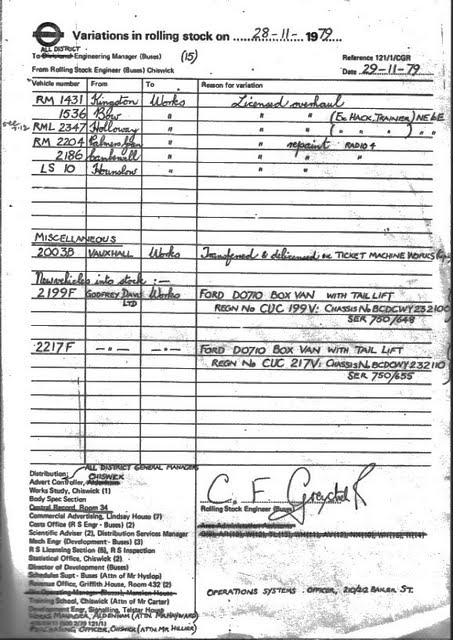 Variations in rolling stock on 28-11- 1979
ALL DISTRICT
To Divisional Engineering Manager (Buses) (15)
Reference 121/1/CGR
From Rolling Stock Engineer (Buses) Chiswick
Date 29-11-79
Vehicle number From To Reason for variation
RM 1431 Kingston Works Licensed overhaul
1536 Bow " " " (Ex HACK, TRAINER) NE6E
RML 2347 Holloway " " " ( " " " ) " "
RM 2204 Palmers Grn " " repaint RADIO 4
2186 Camberwell " " "
LS 10 Hounslow " " "
MISCELLANEOUS
2003B VAUXHALL Works Transferred & delicensed ex TICKET MACHINE WORKS
New vehicles into stock :—
2199F GODFREY DAVIS LTD Works FORD D0710 BOX VAN WITH TAIL LIFT
REGN No CUC 199V: CHASSIS No BCDCWY232100
SER 750/648
2217F —"— —"— FORD D0710 BOX VAN WITH TAIL LIFT
REGN No CUC 217V: CHASSIS No BCDCWY232110
SER 750/655
Distribution: ALL DISTRICT GENERAL MANAGERS
CHISWICK
Advert Controller, Aldenham
Works Study, Chiswick (1)
Body Spec Section
Central Record, Room 34
Commercial Advertising, Lindsey House (7)
Costs Office (R S Engr - Buses) (2)
Scientific Adviser (2), Distribution Services Manager
Mech Engr (Development - Buses) (3)
R S Licensing Section (5), R S Inspection
Statistical Office, Chiswick (2)
Director of Development (Buses)
Schedules Supt - Buses (Attn of Mr Hyslop)
Revenue Office, Griffith House, Room 432 (2)
Training School, Chiswick (Attn of Mr Carter)
Development Engr, Signalling, Telstar House
WORKS MANAGER, ALDENHAM (ATTN MR HAYWARD)
OFFICER, CHISWICK (ATTN MR HILLIER)
Rolling Stock Engineer (Buses)
OPERATIONS SYSTEMS OFFICER, 210/212 BAKER ST.